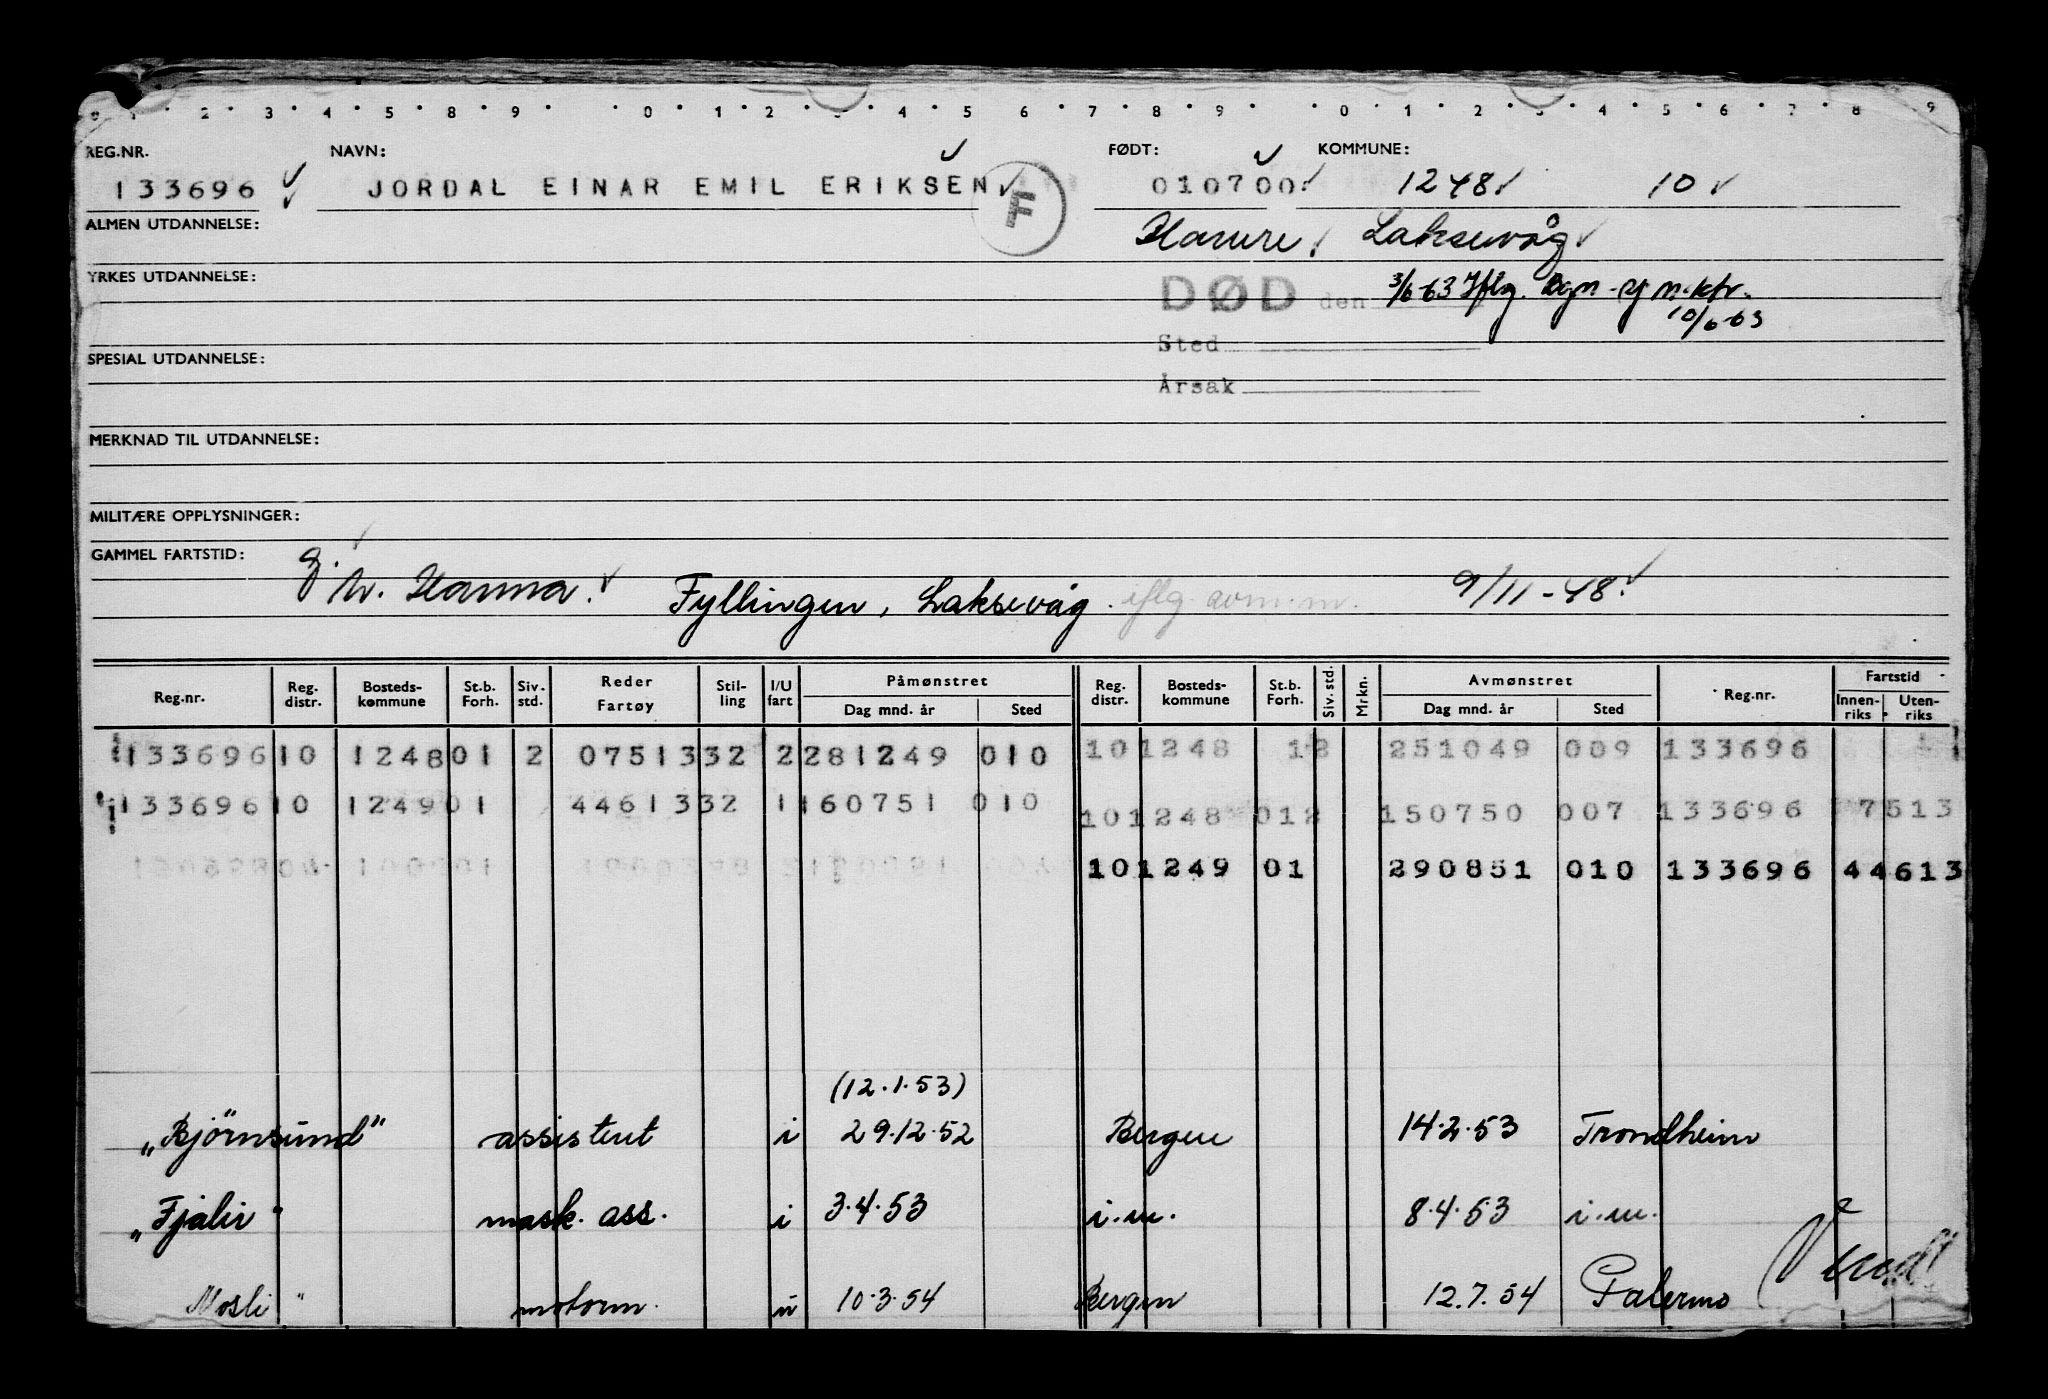 1 2 3 4 5 8 9 0 1 2 3 4 5 6 7 8 9 0 1 2 3 4 5 6 7 8 9
REG.NR. NAVN: FØDT: KOMMUNE:
133696 JORDAL EINAR EMIL ERIKSEN F 010700 1248 10
ALMEN UTDANNELSE: Laksevåg
YRKES UTDANNELSE:
DØD den 3/6-63 Iflg. n.ktr.
10/6-63
Sted
SPESIAL UTDANNELSE:
Årsak
MERKNAD TIL UTDANNELSE:
MILITÆRE OPPLYSNINGER:
GAMMEL FARTSTID:
G. Hanna. Fyllingen, Laksevåg. iflg. avm.m. 9/11-48.
Reg.nr. Reg. distr. Bosteds-kommune St.b. Forh. Siv. std. Reder Fartøy Stil-ling I/U fart Påmønstret Dag mnd. år Sted Reg. distr. Bosteds-kommune St.b. Forh. Siv. std. Mrkn. Avmønstret Dag mnd. år Sted Reg.nr. Fartstid Innen-riks Uten-riks
133696 10 1248 01 2 0751332 2 281249 010 101248 12 251049 009 133696
133696 10 1249 01 4461332 1 160751 010 101248 012 150750 007 133696 7513
101249 01 290851 010 133696 44613
(12.1.53)
„Bjørnsund" assistent i 29.12.52 Bergen 14.2.53 Trondheim
„Fjalir" mask. ass. i 3.4.53 i.m. 8.4.53 i.m.
Mosli " motorm. u 10.3.54 Bergen 12.7.54 Palermo Vend!